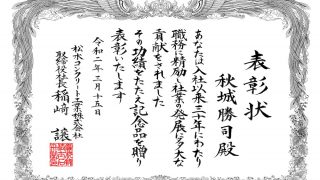 表彰状
秋城勝司殿
あなたは入社以来三十年にわたり
職務に精励し社業の発展に多大な
貢献をされました
その功績をたたえ記念品を贈り
表彰いたします
令和二年三月十五日
松水コンクリート工業株式会社
取締役社長 稲崎 譲